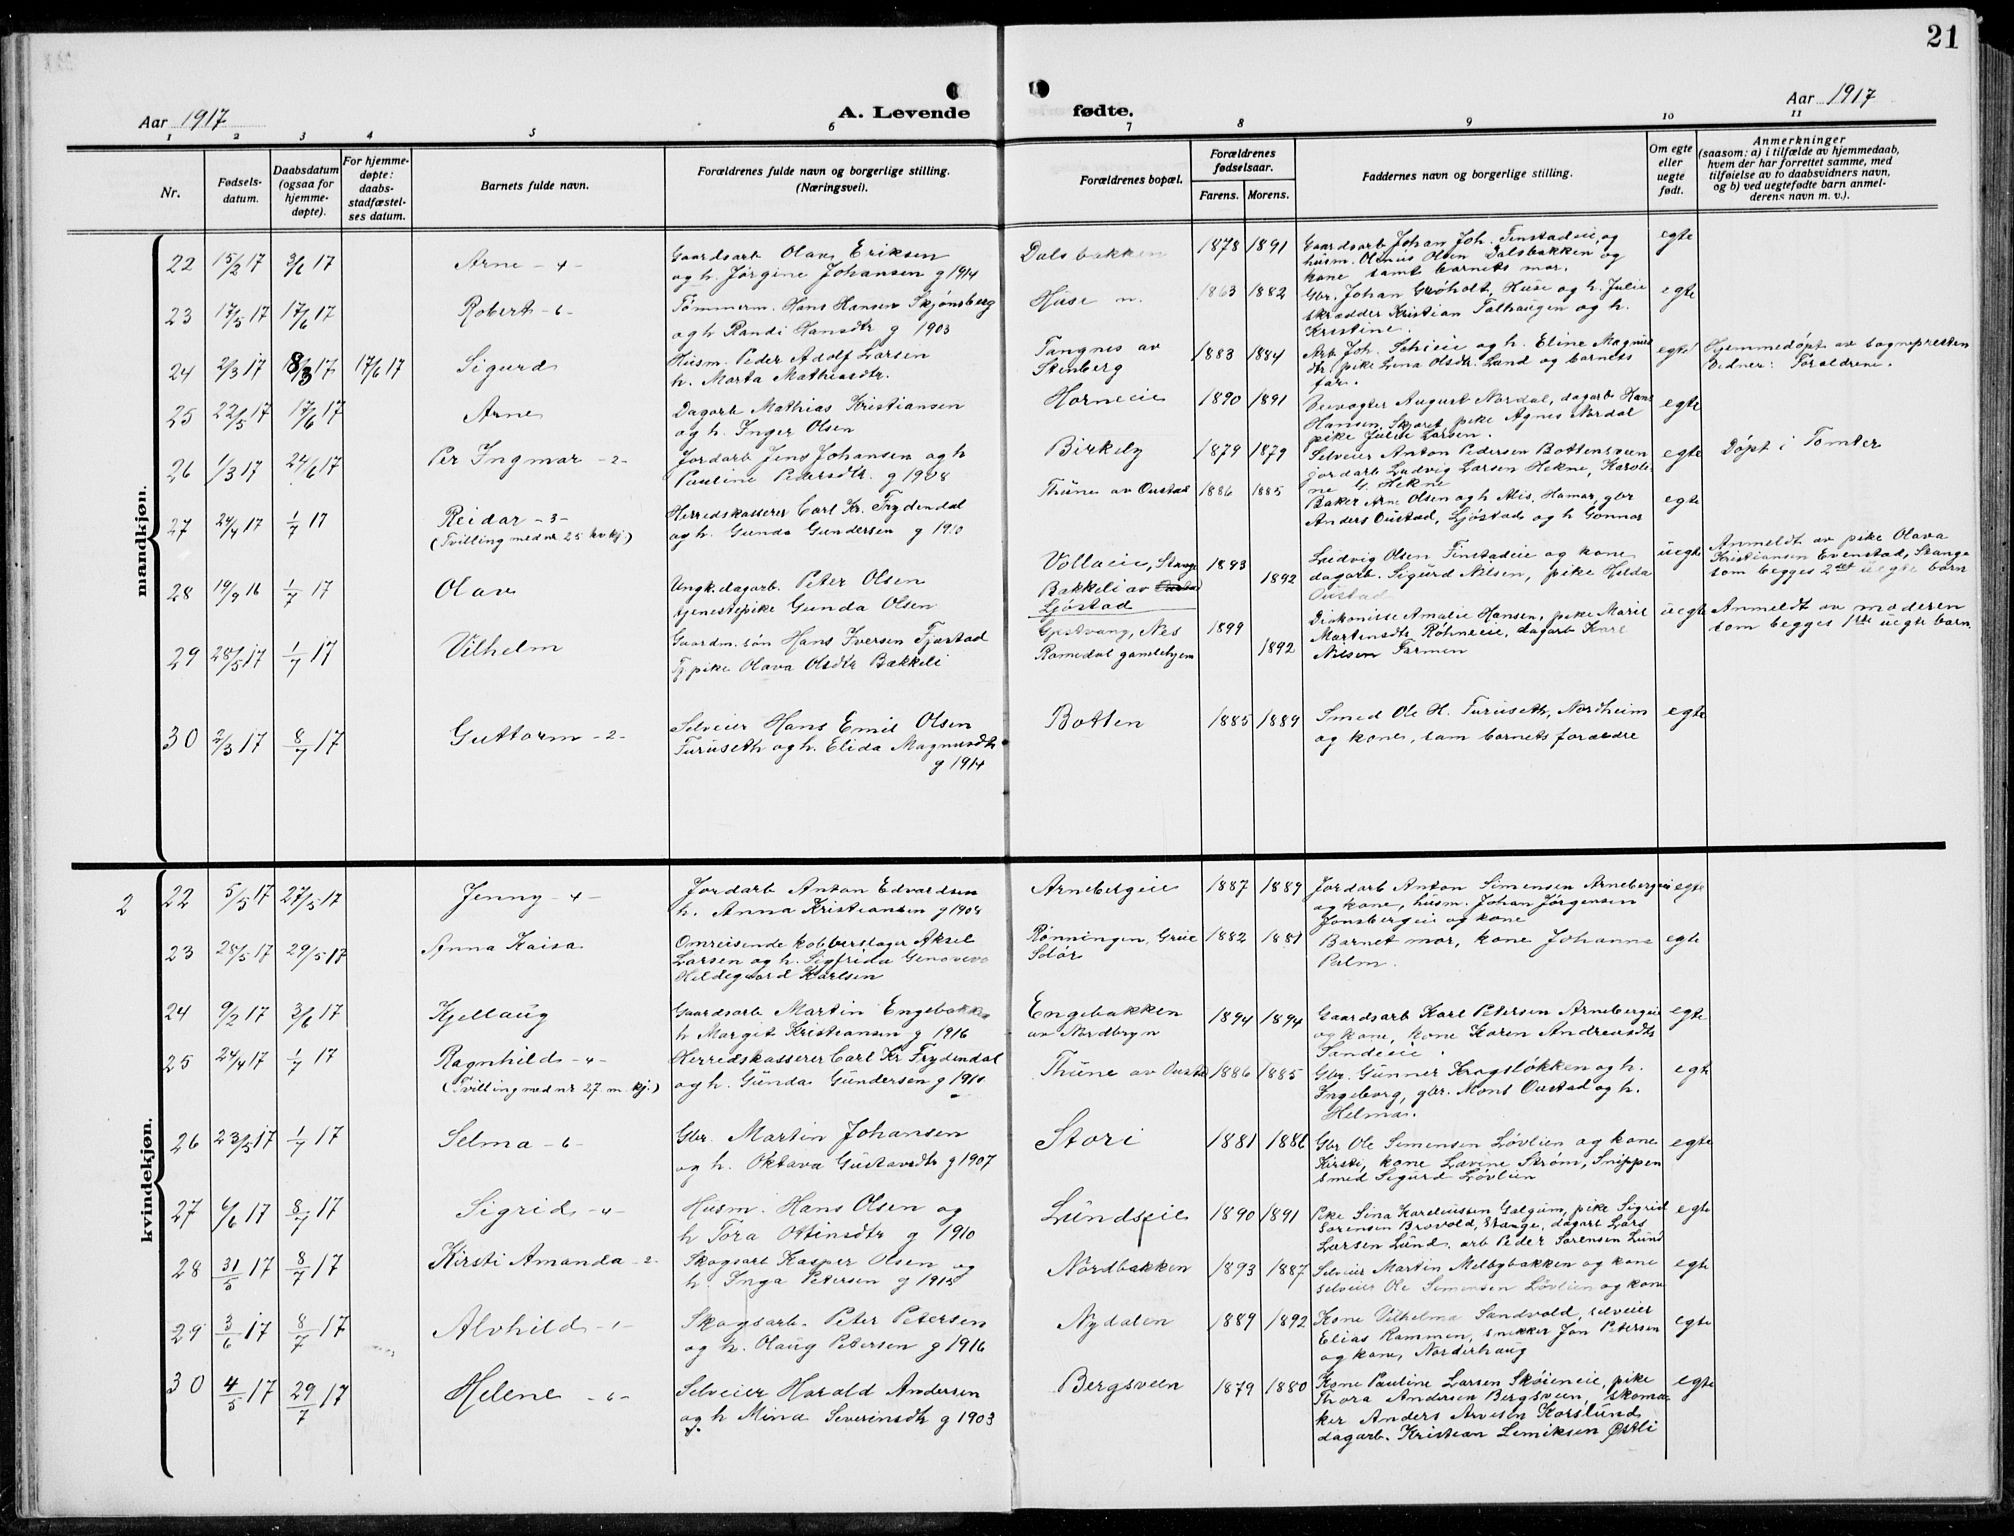 21
Aar 1917
A. Levende fødte.
Aar 1917
1 2 3 4 5 6 7 8 9 10 11
Nr.
Fødsels-
datum.
Daabsdatum
(ogsaa for
hjemme-
døpte).
For hjemme-
døpte:
daabs-
stadfæstel-
ses datum.
Barnets fulde navn.
Forældrenes fulde navn og borgerlige stilling.
(Næringsvei).
Forældrenes bopæl.
Forældrenes
fødselsaar.
Farens. Morens.
Faddernes navn og borgerlige stilling.
Om egte
eller
uegte
født.
Anmerkninger
(saasom: a) i tilfælde av hjemmedaab,
hvem der har forrettet samme, med
tilføielse av to daabsvidners navn,
og b) ved uegtefødte barn anmel-
derens navn m. v.).
mandkjøn.
22 15/2 17 3/6 17 Arne - 4 - Gaardsarb Olav Eriksen
og h. Jørgine Johansen g 1914
Dalsbakken 1878 1891 Gaardsarb Johan Joh. Finstadeie, og
husm. Olinus Olsen Dalsbakken og
kone samt barnets mor. egte
23 17/5 17 17/6 17 Robert - 6 - Tømmerm. Hans Hansen Skjønsberg
og h Randi Hansdtr g 1903
Huse n. 1863 1882 Gbr. Johan Grøholt, Huse og h. Julie
skrædder Kristian Talhaugen og h.
Kristine. egte
24 2/3 17 8/3 17 17/6 17 Sigurd Husm. Peder Adolf Larsen
h. Marta Mathiasdtr.
Tangnes av
Stenberg 1883 1884 Arb Joh. Schieie og h. Eline Magnus
dtr, pike Lina Olsdtr Lund og barnets
far. egte Hjemmedøpt av sognepresten
Vidner: Forældrene.
25 22/5 17 17/6 17 Arne Dagarb Mathias Kristiansen
og h. Inger Olsen
Horneeie 1890 1891 Veivogter August Nordal, dagarb Hans
Hansen Skjøret, pike Agnes Nordal
pike Julie Larsen. egte
26 1/3 17 24/6 17 Per Ingmar - 2 - Jordarb Jens Johansen og h
Pauline Pedersdtr. g 1908
Birkely 1879 1879 Selveier Anton Pedersen Bottensveen
jordarb Ludvig Larsen Hekne, Karoli
ne G. Hekne egte Døpt i Tomter
27 24/4 17 1/7 17 Reidar - 3 -
(Tvilling med nr 25 kv kj.)
Herredskasserer Carl Kr. Frydendal
og h. Gunda Gundersen g 1910
Thune av Oustad 1886 1885 Baker Arne Olsen og h Alis, Hamar, gbr
Anders Oustad, Ljøstad og h Gonnor egte
28 19/9 16 1/7 17 Olav Ungk. dagarb. Peter Olsen
tjenestepike Gunda Olsen
Vollaeie, Stange 1893
Bakkeli av Oustad
Ljøstad 1892
Ludvig Olsen Finstadeie og kone
dagarb. Sigurd Nilsen, pike Hilda
Oustad uegte Anmeldt av pike Olava
Kristiansen Evenstad, Stange
som begges 2det uegte barn
29 28/5 17 1/7 17 Vilhelm Gaardm. søn Hans Iversen Fjæstad
Tj pike Olava Olsdtr Bakkeli
Gpstvang, Nes 1899
Romedal gamlehjem 1892
Diakonisse Amalie Hansen, pike Marie
Martinsdtr Røhneeie, dagarb Karl
Nilsen Farmen uegte Anmeldt av moderen
som begges 1ste uegte barn.
30 2/3 17 8/7 17 Guttorm - 2 - Selveier Hans Emil Olsen
Furuseth og h. Elida Magnusdtr
g 1914
Botten 1885 1889 Smed Ole H. Furuseth, Nordheim
og kone, sam barnets forældre egte
kvindekjøn.
2
22 5/5 17 27/5 17 Jenny - 4 - Jordarb Anton Edvardsen
h. Anna Kristiansen g 1908
Arnebergeie 1887 1889 Jordarb Anton Simensen Arnebergeie
og kone, husm. Johan Jørgensen
Jonsbergeie og kone egte
23 28/5 17 29/5 17 Anna Kaisa Omreisende kobberslager Aksel
Larsen og h. Sigfrida Genoveva
Hildegaard Karlsen
Rønningen, Grue
Solør 1882 1881 Barnet mor, kone Johanna
Palm. egte
24 9/2 17 3/6 17 Kjellaug Gaardsarb Martin Engebakken
h Margit Kristiansen g 1916
Engebakken
av Nordbryn 1894 1894 Gaardsarb Karl Petersen Arnebergeie
og kone, kone Karen Andreasdtr
Sandeeie. egte
25 24/4 17 1/7 17 Ragnhild - 4 -
(Tvilling med nr 27 m. kj.)
Herredskasserer Carl Kr Frydendal
og h. Gunda Gundersen g 1910
Thune av Oustad 1886 1885 Gbr. Gunner Krogsløkken og h.
Ingeborg, gbr. Mons Oustad og h.
Helma. egte
26 23/5 17 1/7 17 Selma - 6 - Gbr. Martin Johansen
og h. Oktava Gustavsdtr g 1907
Stori 1881 1886 Gbr Ole Simensen Løvlien og kone
Kirsti, kone Lovine Strøm, Snippen
smed Sigurd Løvlien egte
27 6/6 17 8/7 17 Sigrid - 4 - Husm. Hans Olsen og
h Tora Ottinsdtr g 1910
Lundseie 1890 1891 Pike Sina Kareliussen Galgum, pike Sigrid
Sørensen Brovold, Stange, dagarb Lars
Larsen Lund. arb Peder Sørensen Lund egte
28 31/5 17 8/7 17 Kirsti Amanda - 2 - Skogsarb Kasper Olsen og
h Inga Petersen g 1915
Nordbakken 1893 1887 Selveier Martin Melbybakken og kone
selveier Ole Simensen Løvlien og kone egte
29 3/6 17 8/7 17 Alvhild - 1 - Skogsarb. Peter Petersen
og h. Olaug Petersen g 1916
Nydalen 1889 1892 Kone Vilhelma Sandvold, selveier
Elias Rammen, snekker Jon Petersen
og kone, Norderhaug egte
30 4/5 17 29/7 17 Helene - 6 - Selveier Harald Andersen
og h Mina Severinsdtr g 1903
Bergsveen 1879 1880 Kone Pauline Larsen Skøieneie, pike
Thora Andersen Bergsveen, skoma
ker Anders Arvesen Korslund
dagarb. Kristian Lemiksen Østli egte